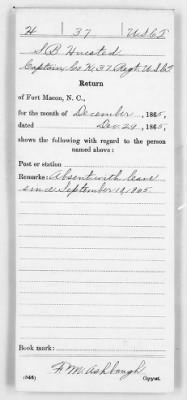 H 37 U.S.C.T.
S. B. Husted
Captain, Co. K, 37 Regt. U.S.C.T.
Return
of Fort Macon, N. C.,
for the month of December, 1865,
dated Dec. 29, 1865,
shows the following with regard to the person
named above:
Post or station
Remarks: Absent with leave
since September 19, 1865
Book mark:
F. M. Ashbaugh
(546) Copyist.